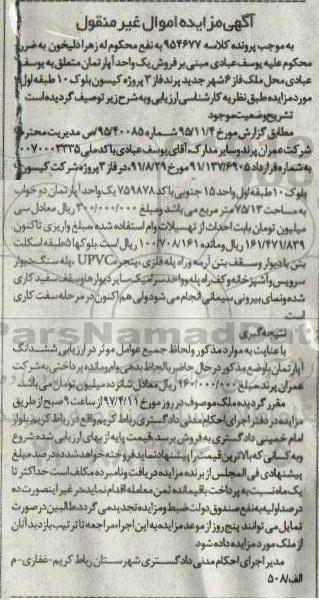 آگهی مزایده اموال غیر منقول
به موجب پرونده کلاسه ۹۵۴۶۷۷ به نفع محکوم له زهرا دلیخون به ضرر
محکوم علیه یوسف عبادی مبنی بر فروش یک واحد آپارتمان متعلق به یوسف
عبادی، محل ملک فاز ۶ شهر جدید پرند فاز ۳ پروژه کیسون بلوک ۱۰ طبقه اول
مورد مزایده طبق نظریه کارشناسی ارزیابی و به شرح زیر توصیف گردیده است
تشریح وضعیت موجود
مطابق گزارش مورخ ۹۵/۱۱/۴ شماره ۹۵/۴۰۰۸۵/ص مدیریت محترم
شرکت عمران پرند و سایر مدارک، آقای یوسف عبادی با کد ملی ۰۰۷۰۰۰۳۳۳۵
به شماره قرارداد ۹۱/۱۳۷/۶۹۰۵ مورخ ۹۱/۸/۲۹، در فاز ۳ پروژه شرکت کیسون
بلوک ۱۰ طبقه اول واحد ۱۵ جنوبی با کد ۷۵۹۸۷۸ یک واحد آپارتمان دو خواب
به مساحت ۷۵/۱۳ متر مربع می باشد و مبلغ ۳۰۰/۰۰۰/۰۰۰ ریال معادل سی
میلیون تومان بابت احداث از تسهیلات وام استفاده شده مبلغ واریزی تاکنون
۱۶۱/۴۷۱/۸۳۹ ریال و مانده ۱۰۰/۷۰۸/۱۶۱ ریال است بلوکها ۵ طبقه اسکلت
بتن با دیوار و سقف بتن آرمه و راه پله فلزی، پنجره UPVC، پله سنگ، دیوار
سرویس و آشپزخانه و کف راه پله و واحد سرامیک، سایر دیوارها و سقف سفید کاری
شده و نمای بیرونی سیمانی انجام می شود ولی هم اکنون در مرحله سفت کاری
است.
نتیجه گیری
با عنایت به موارد مذکور و لحاظ جمیع عوامل موثر در ارزیابی ششدانگ
آپارتمان با وضع مذکور در حال حاضر با لحاظ بدهی وام و مانده پرداختی به شرکت
عمران پرند، مبلغ ۱۶۰/۰۰۰/۰۰۰ ریال معادل شانزده میلیون تومان می باشد.
مقرر گردیده ملک موصوف در روز مورخ ۹۷/۴/۱۱ از ساعت ۹ صبح از طریق
مزایده در دفتر اجرای احکام مدنی دادگستری رباط کریم واقع در رباط کریم بلوار
امام خمینی دادگستری به فروش برسد. قیمت پایه از بهای ارزیابی شده شروع
و به کسانی که بالاترین قیمت را پیشنهاد نماید فروخته خواهد شد ده درصد مبلغ
پیشنهادی فی المجلس از برنده مزایده دریافت و نامبرده مکلف است حداکثر تا
یک ماه نسبت به پرداخت باقیمانده ثمن معامله اقدام نماید، در غیر اینصورت ده
درصد اولیه به نفع صندوق دولت ضبط و مزایده تجدید می گردد. طالبین در صورت
تمایل می توانند پنج روز از موعد مزایده به این اجرا مراجعه تا ترتیب بازدید آنان
از ملک مورد مزایده داده شود
مدیر اجرای احکام مدنی دادگستری شهرستان رباط کریم-غفاری-م
الف/۵۰۸